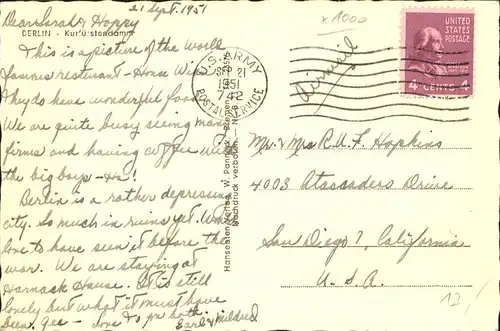 21 Sept. 1951
Dear Sarah & Hoppy
BERLIN - Kurfürstendamm
This is a picture of the world
famous resturant - House Wien
They do have wonderful food
We are quite busy seeing many
firms and having coffee with
the big boys - Ha!
Berlin is a rather depressing
city. So much in ruins yet. Would
love to have seen it before the
war. We are staying at
Harnack House. It is still
lovely but what it must have
been, gee - love to you both.
Earl & Mildred
x 1000
Airmail
U.S. ARMY
SEP 21
1951
742
POSTAL SERVICE
UNITED
STATES
POSTAGE
4 CENTS 4
Mr. & Mrs R. U. F. Hopkins
4003 Atascadero Drive
San Diego 7, California
U. S. A.
Nachdruck verboten
12/